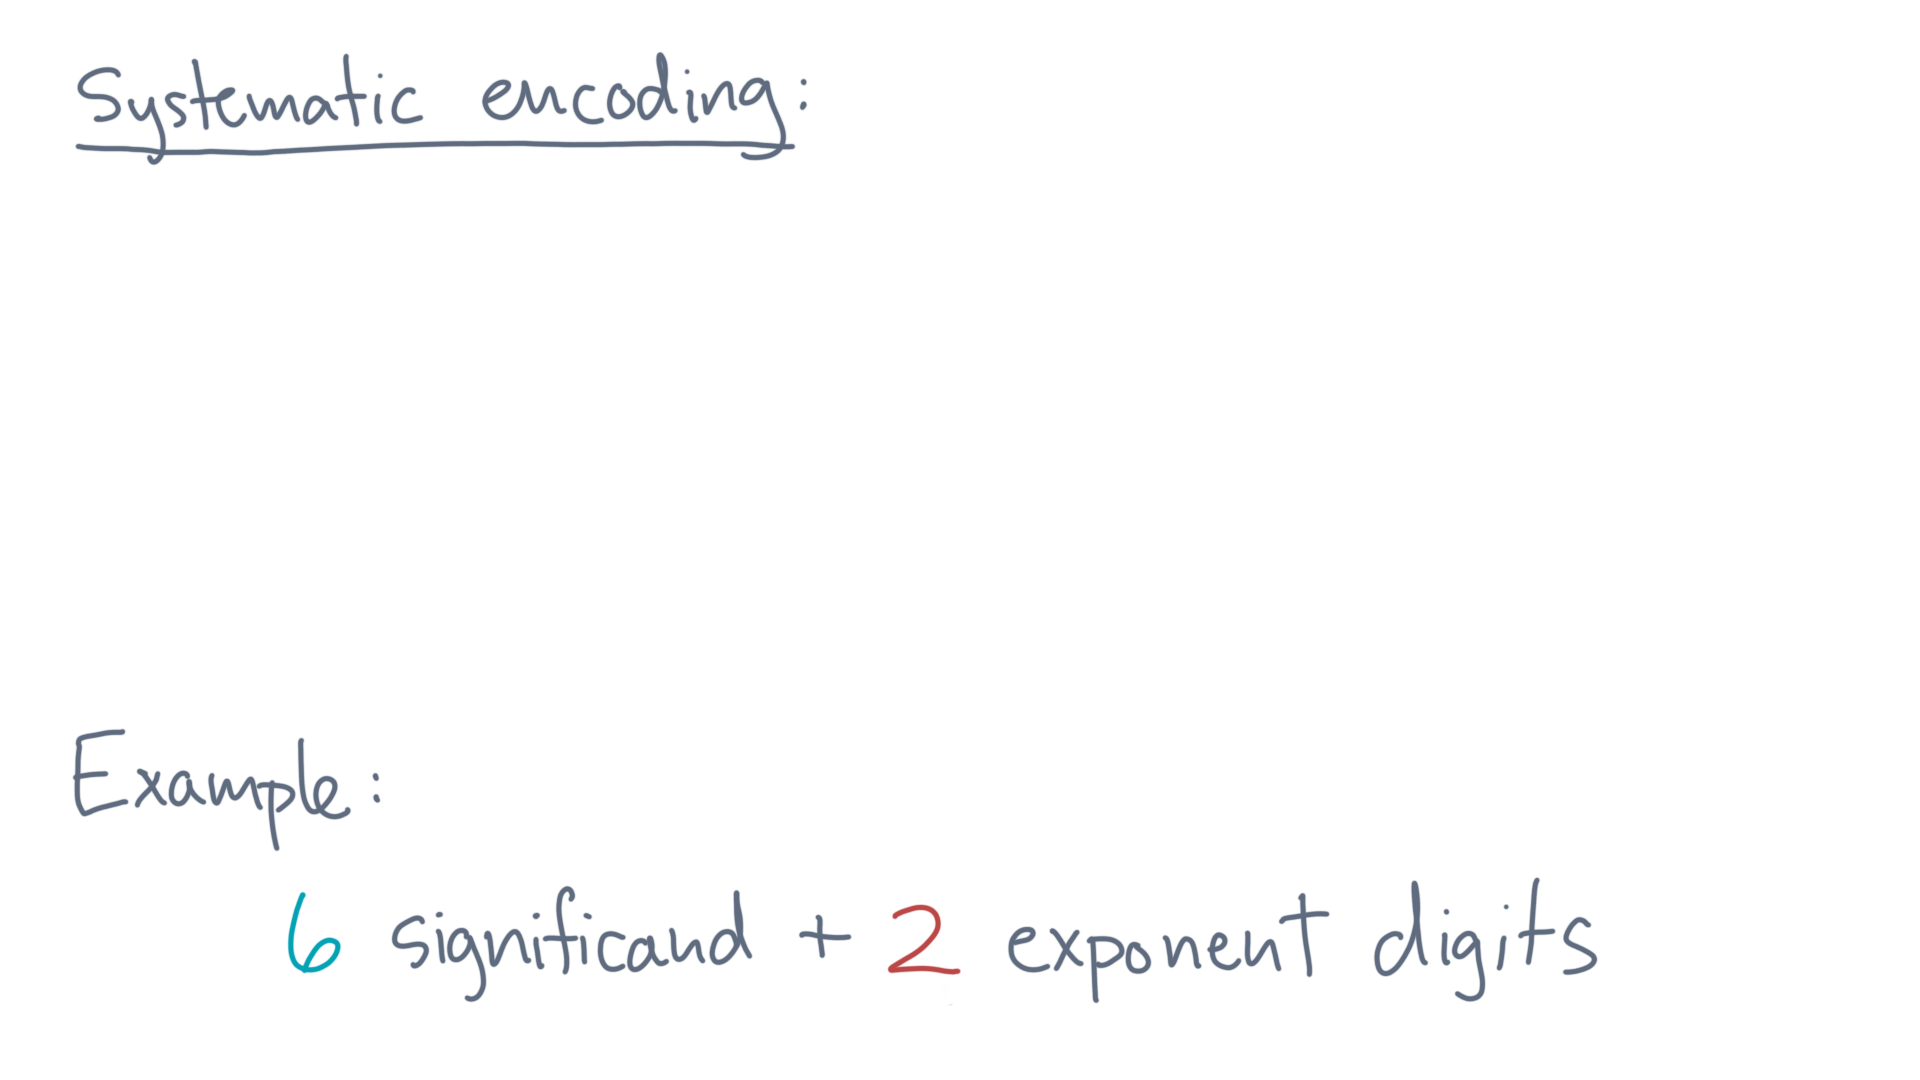 Systematic encoding:
Example:
6 significand + 2 exponent digits